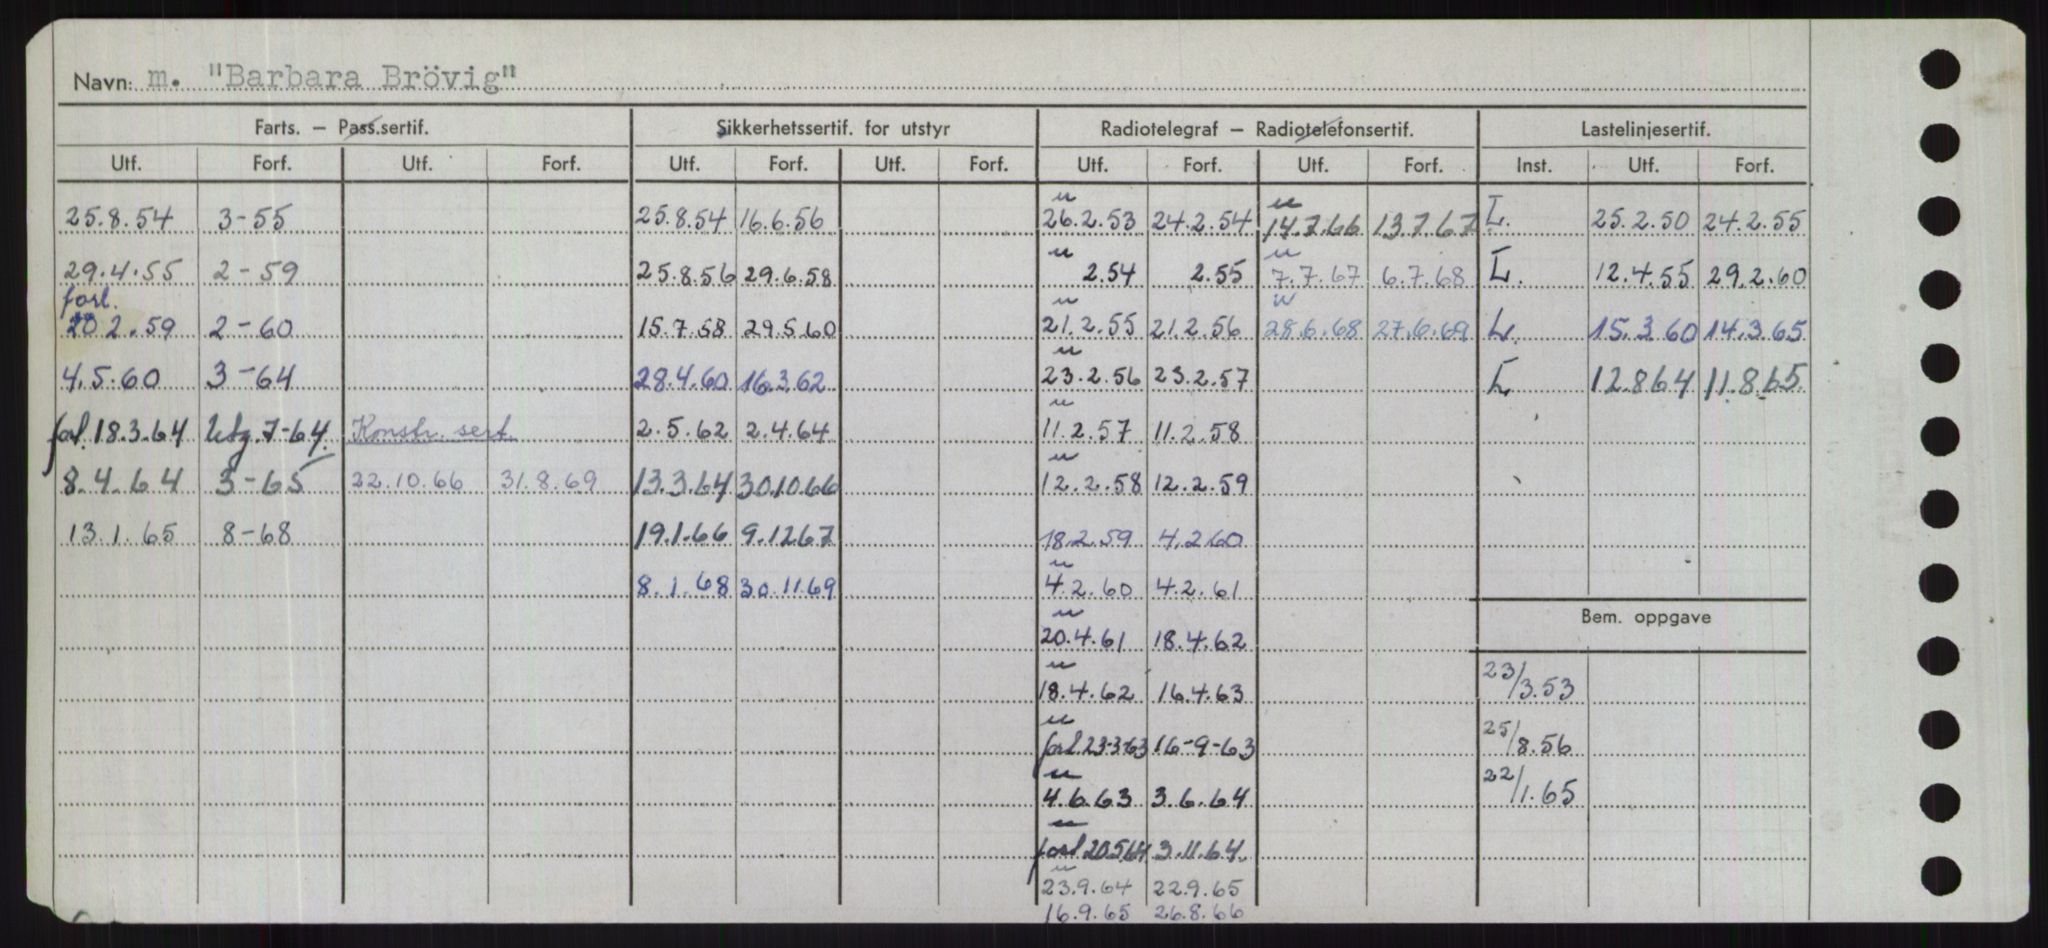 Navn: m. "Barbara Brövig"
Farts. – Pass.sertif. Sikkerhetssertif. for utstyr Radiotelegraf – Radiotelefonsertif. Lastelinjesertif.
Utf. Forf. Utf. Forf. Utf. Forf. Utf. Forf. Utf. Forf. Utf. Forf. Inst. Utf. Forf.
u u
25.8.54 3-55 25.8.54 16.6.56 26.2.53 24.2.54 14.7.66 13.7.67 L. 25.2.50 24.2.55
u u
29.4.55 2-59 25.8.56 29.6.58 2.54 2.55 7.7.67 6.7.68 L. 12.4.55 29.2.60
forl. u u
20.2.59 2-60 15.7.58 29.5.60 21.2.55 21.2.56 28.6.68 27.6.69 L. 15.3.60 14.3.65
u
4.5.60 3-64 28.4.60 16.3.62 23.2.56 23.2.57 L 12.8.64 11.8.65
u
forl. 18.3.64 Utg. 7-64. Konstr. sert. 2.5.62 2.4.64 11.2.57 11.2.58
u
8.4.64 3-65 22.10.66 31.8.69 13.3.64 30.10.66 12.2.58 12.2.59
13.1.65 8-68 19.1.66 9.12.67 18.2.59 4.2.60
u
8.1.68 30.11.69 4.2.60 4.2.61
Bem. oppgave
u
20.4.61 18.4.62
u
18.4.62 16.4.63 23/3.53
u
forl 23-3-63 16-9-63 25/8.56
u
4.6.63 3.6.64 22/1.65
u
forl 20.5.64 3.11.64.
u
23.9.64 22.9.65
16.9.65 26.8.66